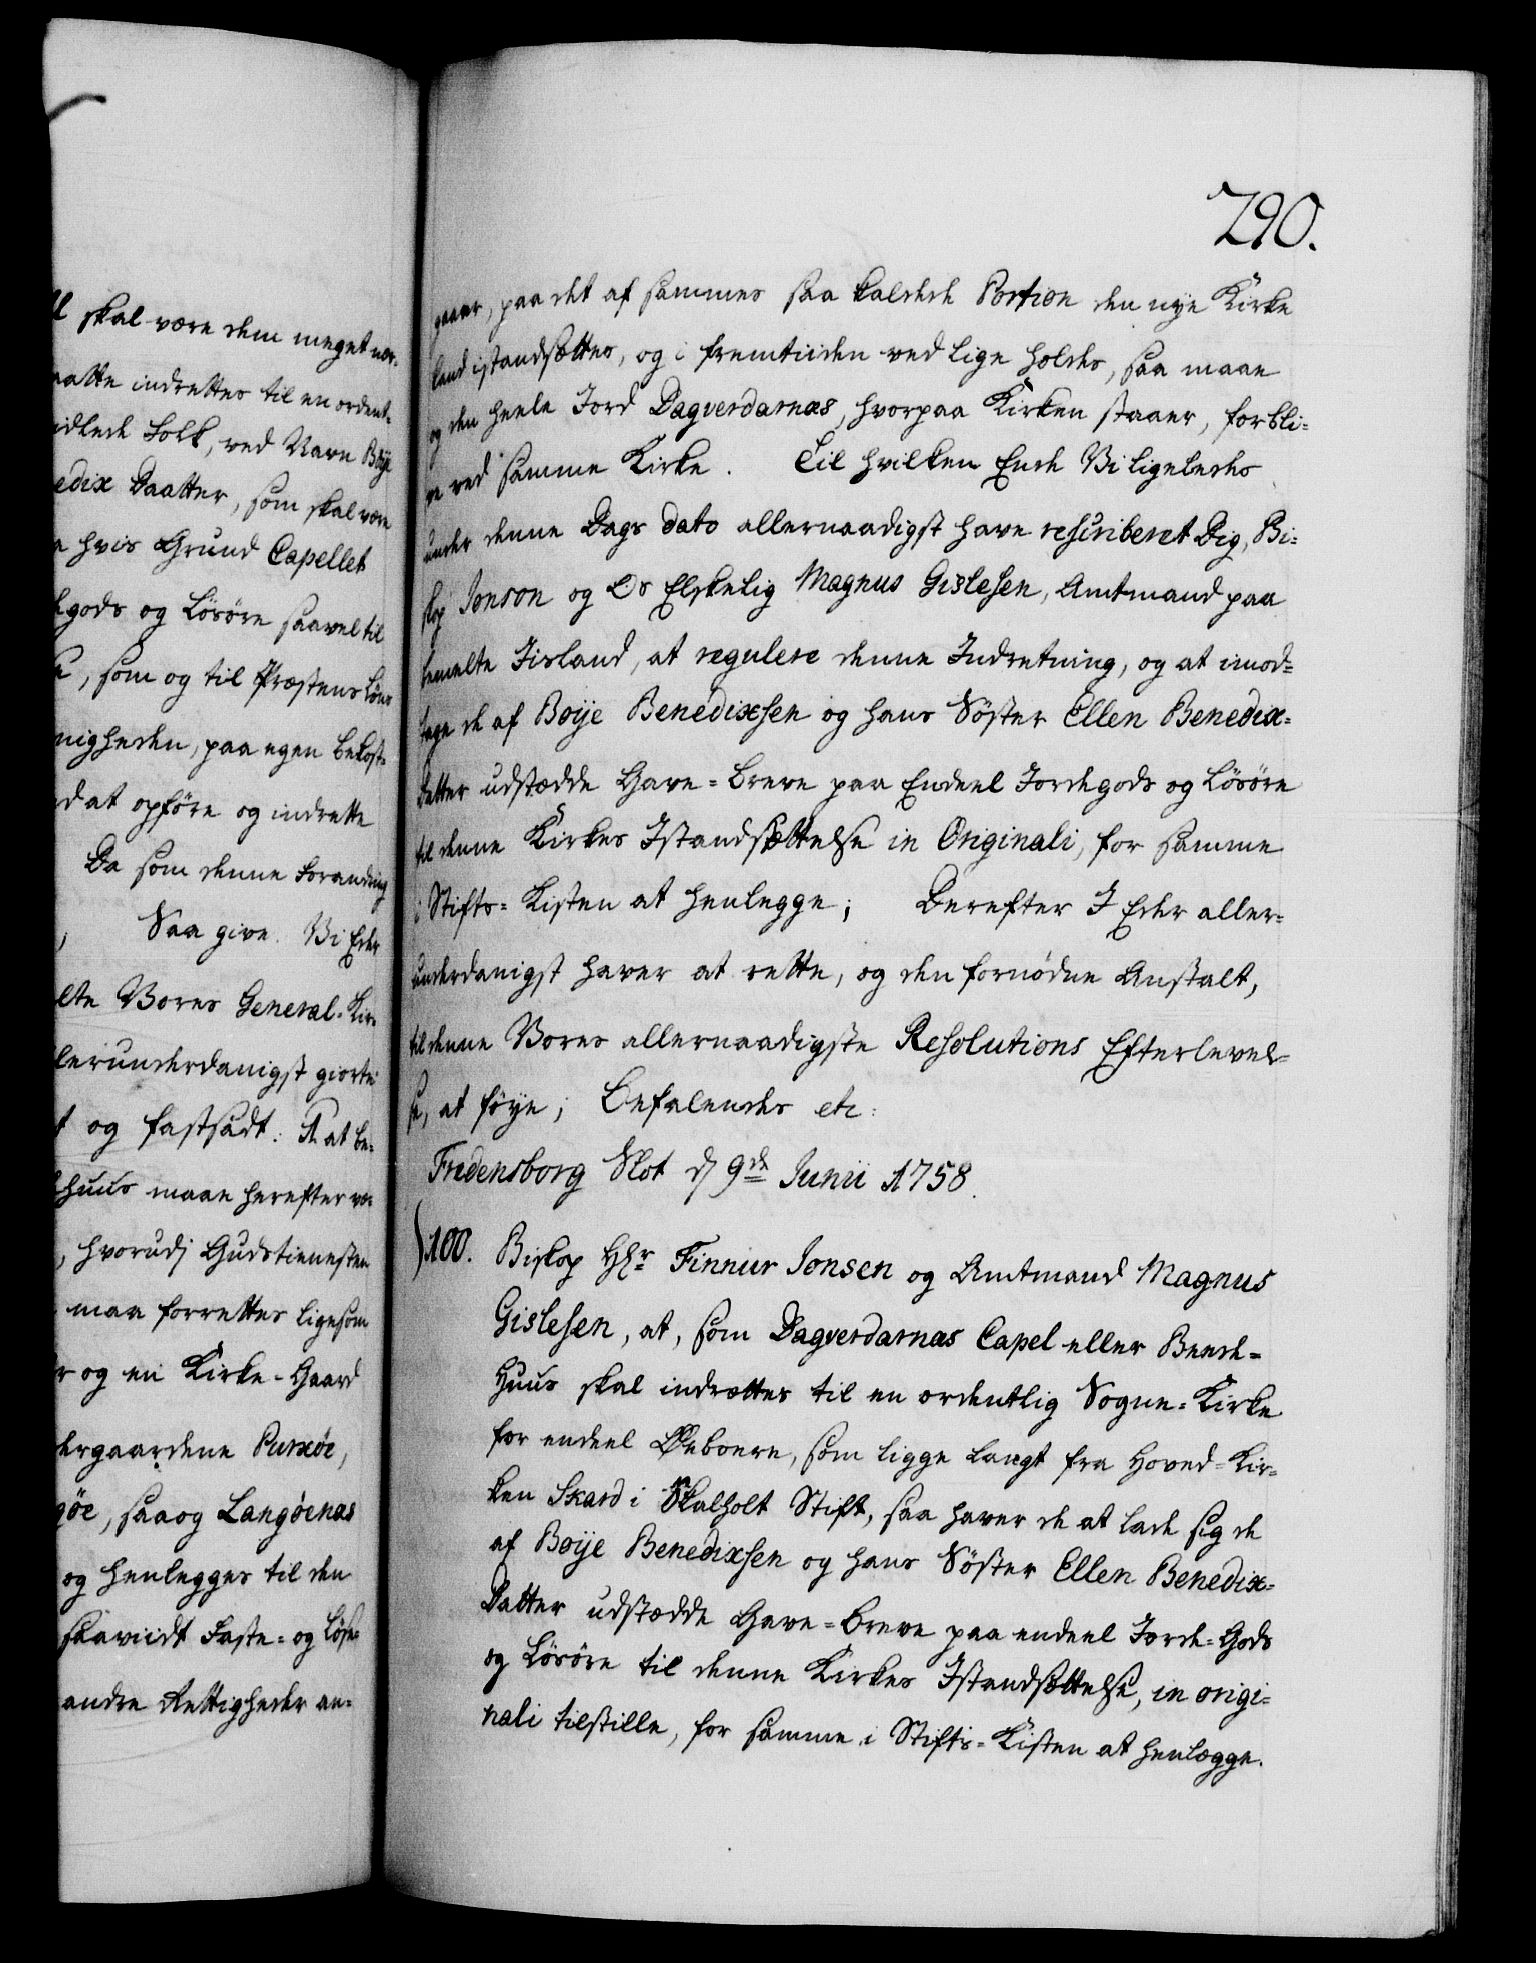 ll skal være dem meget nær-
maatte indrettes til en ordent-
Folk, ved Navn Boye
edix Daatter, som skal være
hvis Grund Capellet
gods og Løsøre saavel til
, som og til Præstens Løns
nigheden, paa egen bekost-
at opføre og indrette
Da som denne Forandring
Saa give Vi Eder
Vores General-Kir-
lerunderdanigst giorte
og fastsadt: At be-
huus maae herefter væ-
, hvorudj Gudstienesten
maa forrettes ligesom
og en Kirke-Gaard
ergaardene Purxøe,
gøe, saa og Langøenæs
og henlegges til den
saaviidt Faste- og Løse-
andre Rettigheder an-
290.
gaaer, paa det af sammes saa kaldede Portion den nye Kirke
kand istandsættes, og i fremtiiden ved lige holdes, saa maae
og den heele Jord Dagverdarnæs, hvorpaa Kirken staaer, forbli-
ve ved samme Kirke. Til hvilken Ende Vi ligeledes
under denne Dags dato allernaadigst have rescriberet Dig, Bi-
skop Jonson og Os Elskelig Magnus Gislesen, Amtmand paa
bemelte Iisland, at regulere denne Indretning, og at imod-
tage de af Boye Benedixsen og hans Søster Ellen Benedix-
datter udstædde Gave-Breve paa Endeel Jordegods og Løsøre
til denne Kirkes Istandsættelse in Originali, for samme
i Stifts-Kisten at henlegge; Derefter I Eder aller-
underdanigst haver at rette, og den fornødne Anstalt,
til denne Vores allernaadigste Resolutions Efterlevel-
se, at føye; Befalendes etc:
Fredensborg Slot d 9de Junii 1758.
100. Biskop Hr Finnur Jonsen og Amtmand Magnus
Gislesen, at, som Dagverdarnæs Capel eller Beede-
Huus skal indrættes til en ordentlig Sogne-Kirke
for endeel Øeboere, som ligge langt fra Hoved-Kir-
ken Skard i Skalholt Stift, saa haver de at lade sig de
af Boye Benedixsen og hans Søster Ellen Benedix-
Datter udstædde Gave-Breve paa endeel Jorde-Gods
og Løsøre til denne Kirkes Istandsættelse, in origi-
nali tilstille, for samme i Stifts-Kisten at henlægge.